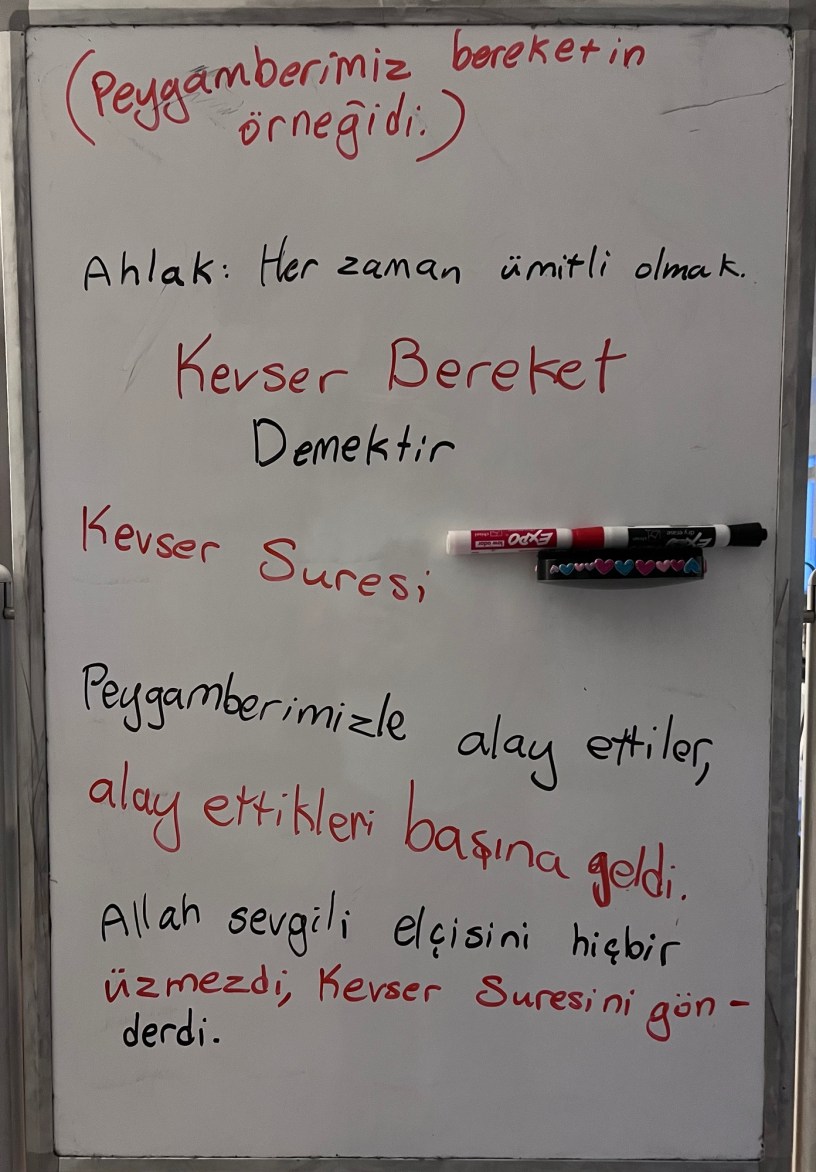 (Peygamberimiz bereketin
örneğidi.)
Ahlak: Her zaman ümitli olmak.
Kevser Bereket
Demektir
Kevser Suresi
EXPO
low odor
EXPO
Peygamberimizle alay ettiler,
alay ettikleri başına geldi.
Allah sevgili elçisini hiçbir
üzmezdi, Kevser Suresini gön-
derdi.